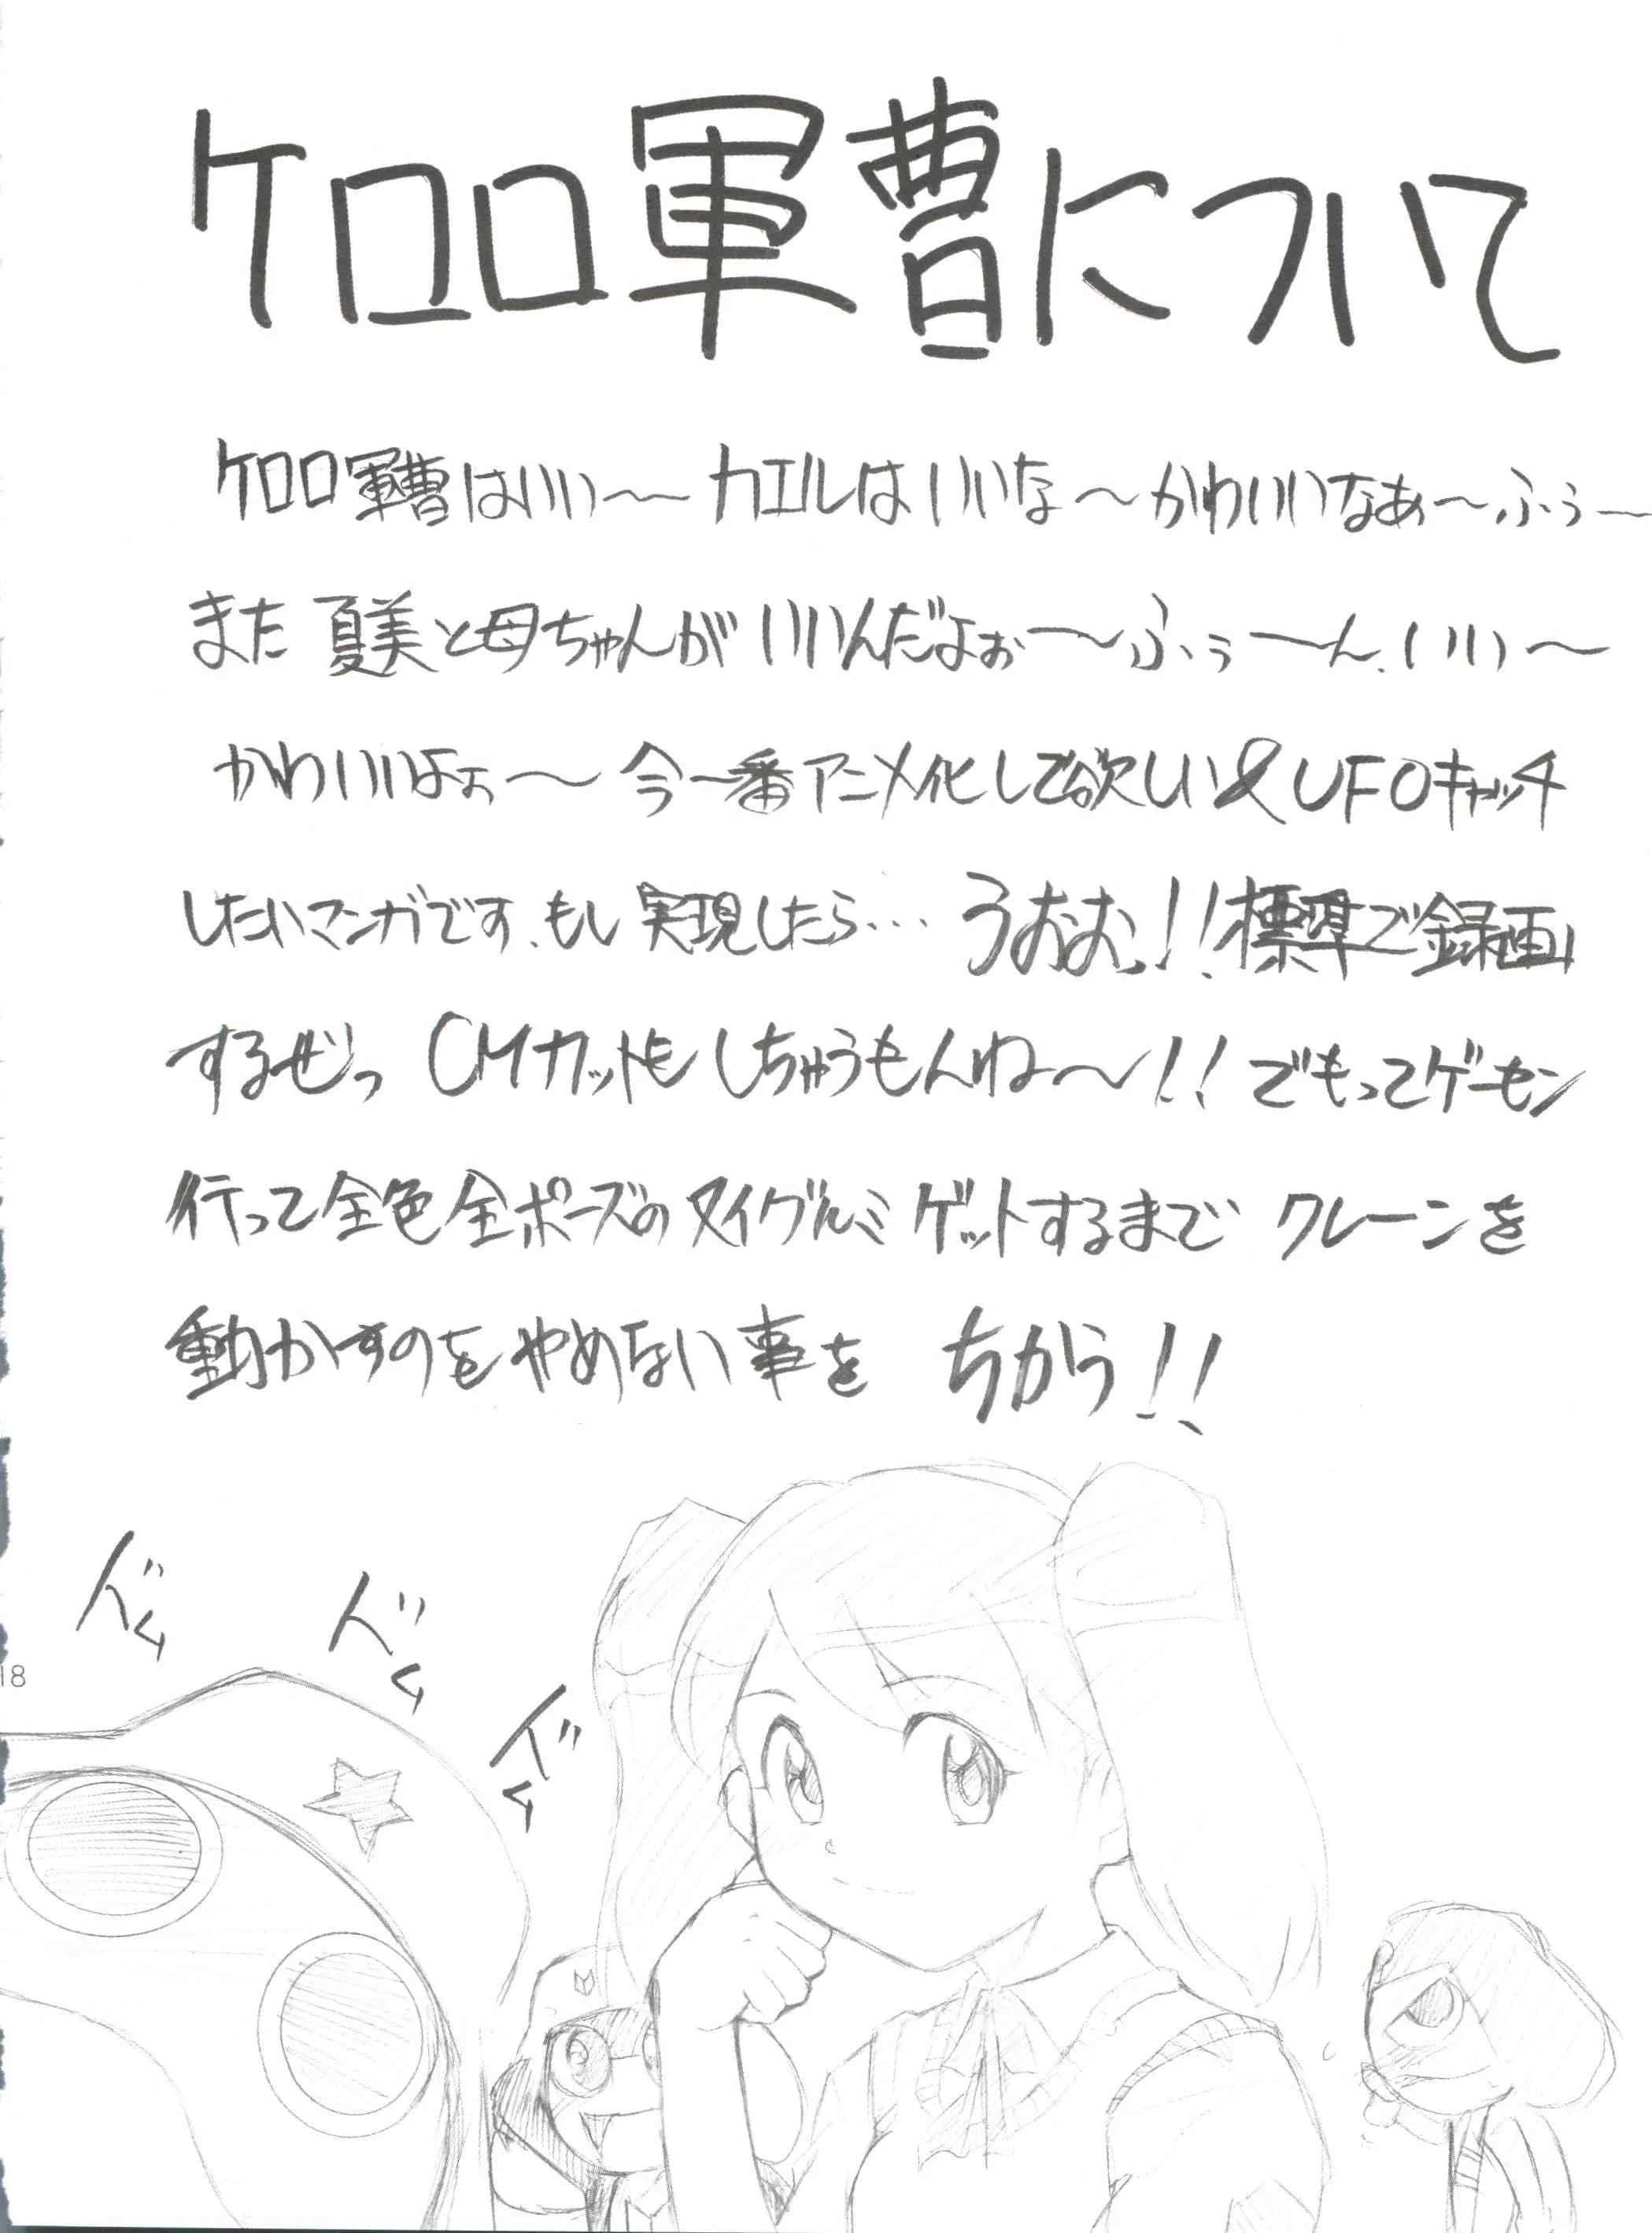 ケロロ軍曹について
ケロロ軍曹はいい〜〜カエルはいいな〜かわいいなあ〜ふぅ〜
また夏美と母ちゃんがいいんだよぉ〜〜ふぅ〜〜ん、いい〜
かわいいよぉ〜〜今一番アニメ化して欲しい&UFOキャッチ
したいマンガです、もし実現したら…うおお!!標準で録画
するぜっ CMカットもしちゃうもんね〜!!でもってゲーセン
行って全色全ポーズのヌイグルミゲットするまでクレーンを
動かすのをやめない事を ちかう!!
ドム
ドム
ドム
18